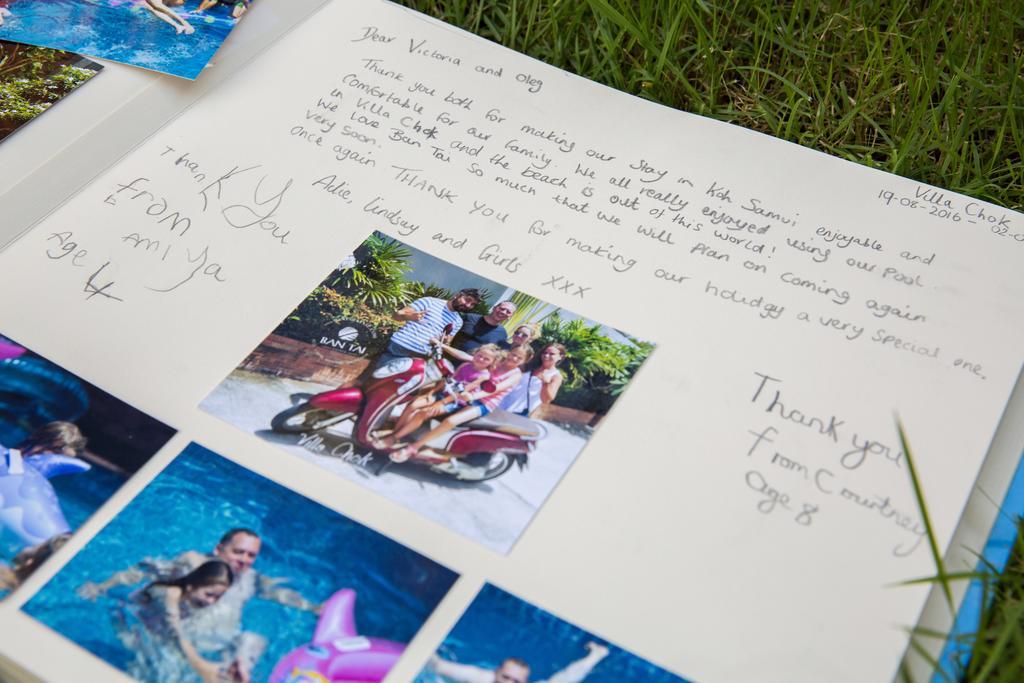 Villa Chok
19-08-2016 - 02-0
Dear Victoria and Oleg
Thank you both for making our stay in Koh Samui enjoyable and
comfortable for our family. We all really enjoyed using our pool
in Villa Chok and the beach is out of this world!
We love Ban Tai so much that we will plan on coming again
very soon.
Once again THANK YOU for making our holiday a very special one.
Adie, Lindsay and Girls xxx
Thank You
From
Amiya
Age 4
BAN TAI
Villa Chok
Thank you
from Courtney
age 8